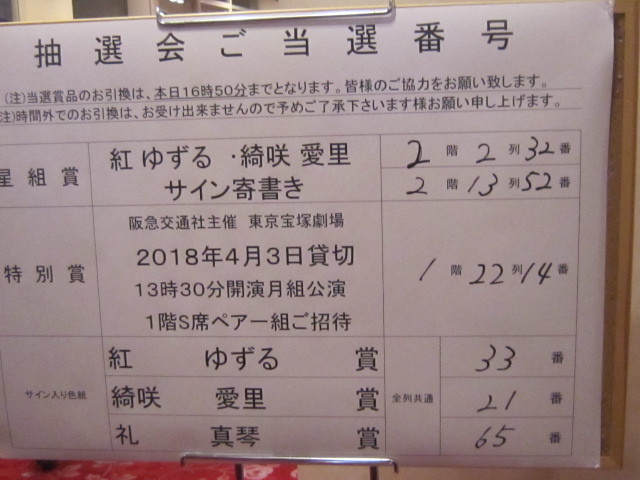 抽選会ご当選番号
(注)当選賞品のお引換は、本日16時50分までとなります。皆様のご協力をお願い致します。
注)時間外でのお引換は、お受け出来ませんので予めご了承下さいます様お願い申し上げます。
星組賞
紅 ゆずる ・綺咲 愛里
サイン寄書き
2 階 2 列 32 番
2 階 13 列 52 番
特別賞
阪急交通社主催 東京宝塚劇場
2018年4月3日貸切
13時30分開演月組公演
1階S席ペアー組ご招待
1 階 22 列 14 番
サイン入り色紙
紅 ゆずる 賞
綺咲 愛里 賞
礼 真琴 賞
全列共通
33 番
21 番
65 番